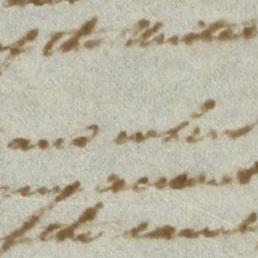 of the United
and when
my account
of the same